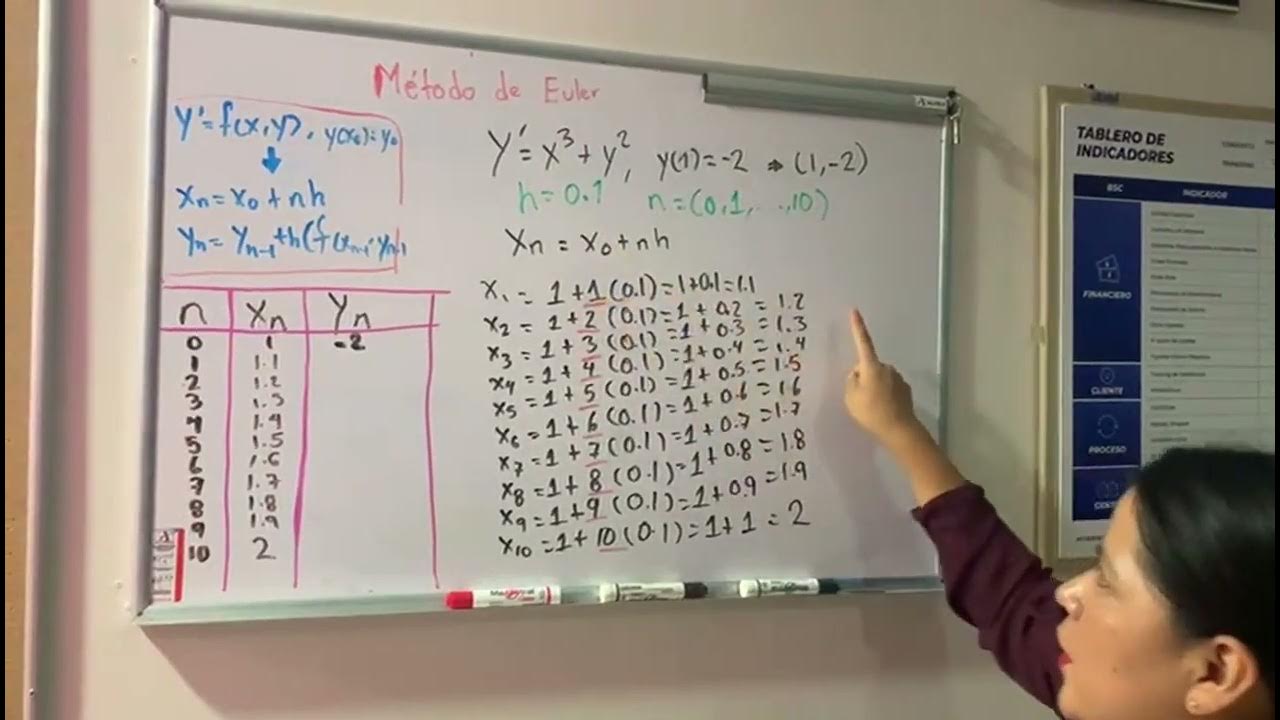 Método de Euler
Y'=f(x,y), y(x₀)=y₀
Xn=x₀+nh
Yn=Yn-1+h(f(xn-1,yn-1
Y'=x³+y², y(1)=-2 ⇒ (1,-2)
h=0.1 n=(0,1,...,10)
Xn = x₀+nh
X₁ = 1+1(0.1)=1+0.1=1.1
X₂ = 1+2(0.1)=1+0.2=1.2
X₃ = 1+3(0.1)=1+0.3=1.3
X₄ = 1+4(0.1)=1+0.4=1.4
X₅ = 1+5(0.1)=1+0.5=1.5
X₆ = 1+6(0.1)=1+0.6=1.6
X₇ = 1+7(0.1)=1+0.7=1.7
X₈ = 1+8(0.1)=1+0.8=1.8
X₉ = 1+9(0.1)=1+0.9=1.9
X₁₀ = 1+10(0.1)=1+1=2
n Xn Yn
0 1 -2
1 1.1
2 1.2
3 1.3
4 1.4
5 1.5
6 1.6
7 1.7
8 1.8
9 1.9
10 2
TABLERO DE
INDICADORES
BSC INDICADOR
FINANCIERO
CLIENTE
PROCESO